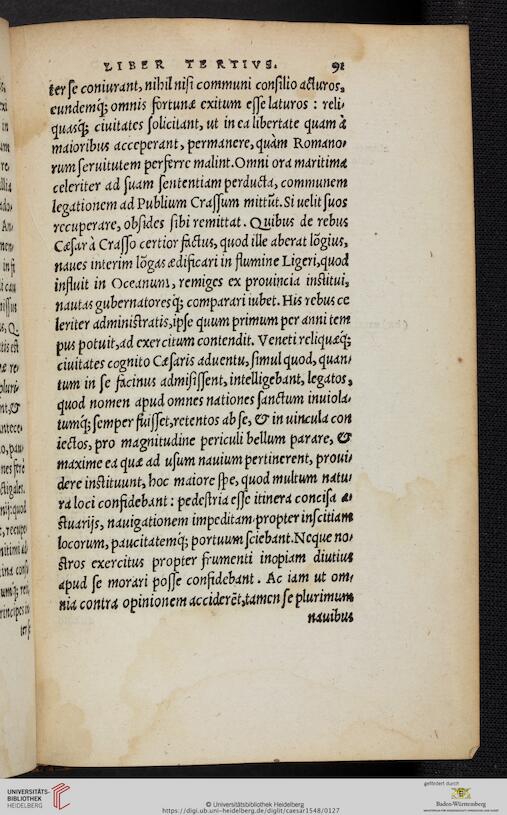 LIBER TERTIVS. 91
ter se coniurant, nihil nisi communi consilio acturos,
eundemq́; omnis fortunæ exitum esse laturos : reli-
quasq́; ciuitates solicitant, ut in ea libertate quam à
maioribus acceperant, permanere, quàm Romano-
rum seruitutem perferre malint. Omni ora maritima
celeriter ad suam sententiam perducta, communem
legationem ad Publium Crassum mittũt. Si uelit suos
recuperare, obsides sibi remittat . Quibus de rebus
Cæsar à Crasso certior factus, quod ille aberat lõgius,
naues interim lõgas ædificari in flumine Ligeri, quod
influit in Oceanum, remiges ex prouincia institui,
nautas gubernatoresq́; comparari iubet. His rebus ce
leriter administratis, ipse quum primum per anni tem
pus potuit, ad exercitum contendit. Veneti reliquæq́;
ciuitates cognito Cæsaris aduentu, simul quod, quan-
tum in se facinus admisissent, intelligebant, legatos,
quod nomen apud omnes nationes sanctum inuiola-
tumq́; semper fuisset, retentos ab se, & in uincula con
iectos, pro magnitudine periculi bellum parare, &
maxime ea quæ ad usum nauium pertinerent, proui-
dere instituunt, hoc maiore spe, quod multum natu-
ra loci confidebant : pedestria esse itinera concisa æ-
stuarijs, nauigationem impeditam propter inscitiam
locorum, paucitatemq́; portuum sciebant. Neque no-
stros exercitus propter frumenti inopiam diutius
apud se morari posse confidebant . Ac iam ut om-
nia contra opinionem acciderẽt, tamen se plurimum
nauibus
UNIVERSITÄTS-
BIBLIOTHEK
HEIDELBERG
© Universitätsbibliothek Heidelberg
https://digi.ub.uni-heidelberg.de/diglit/caesar1548/0127
gefördert durch
Baden-Württemberg